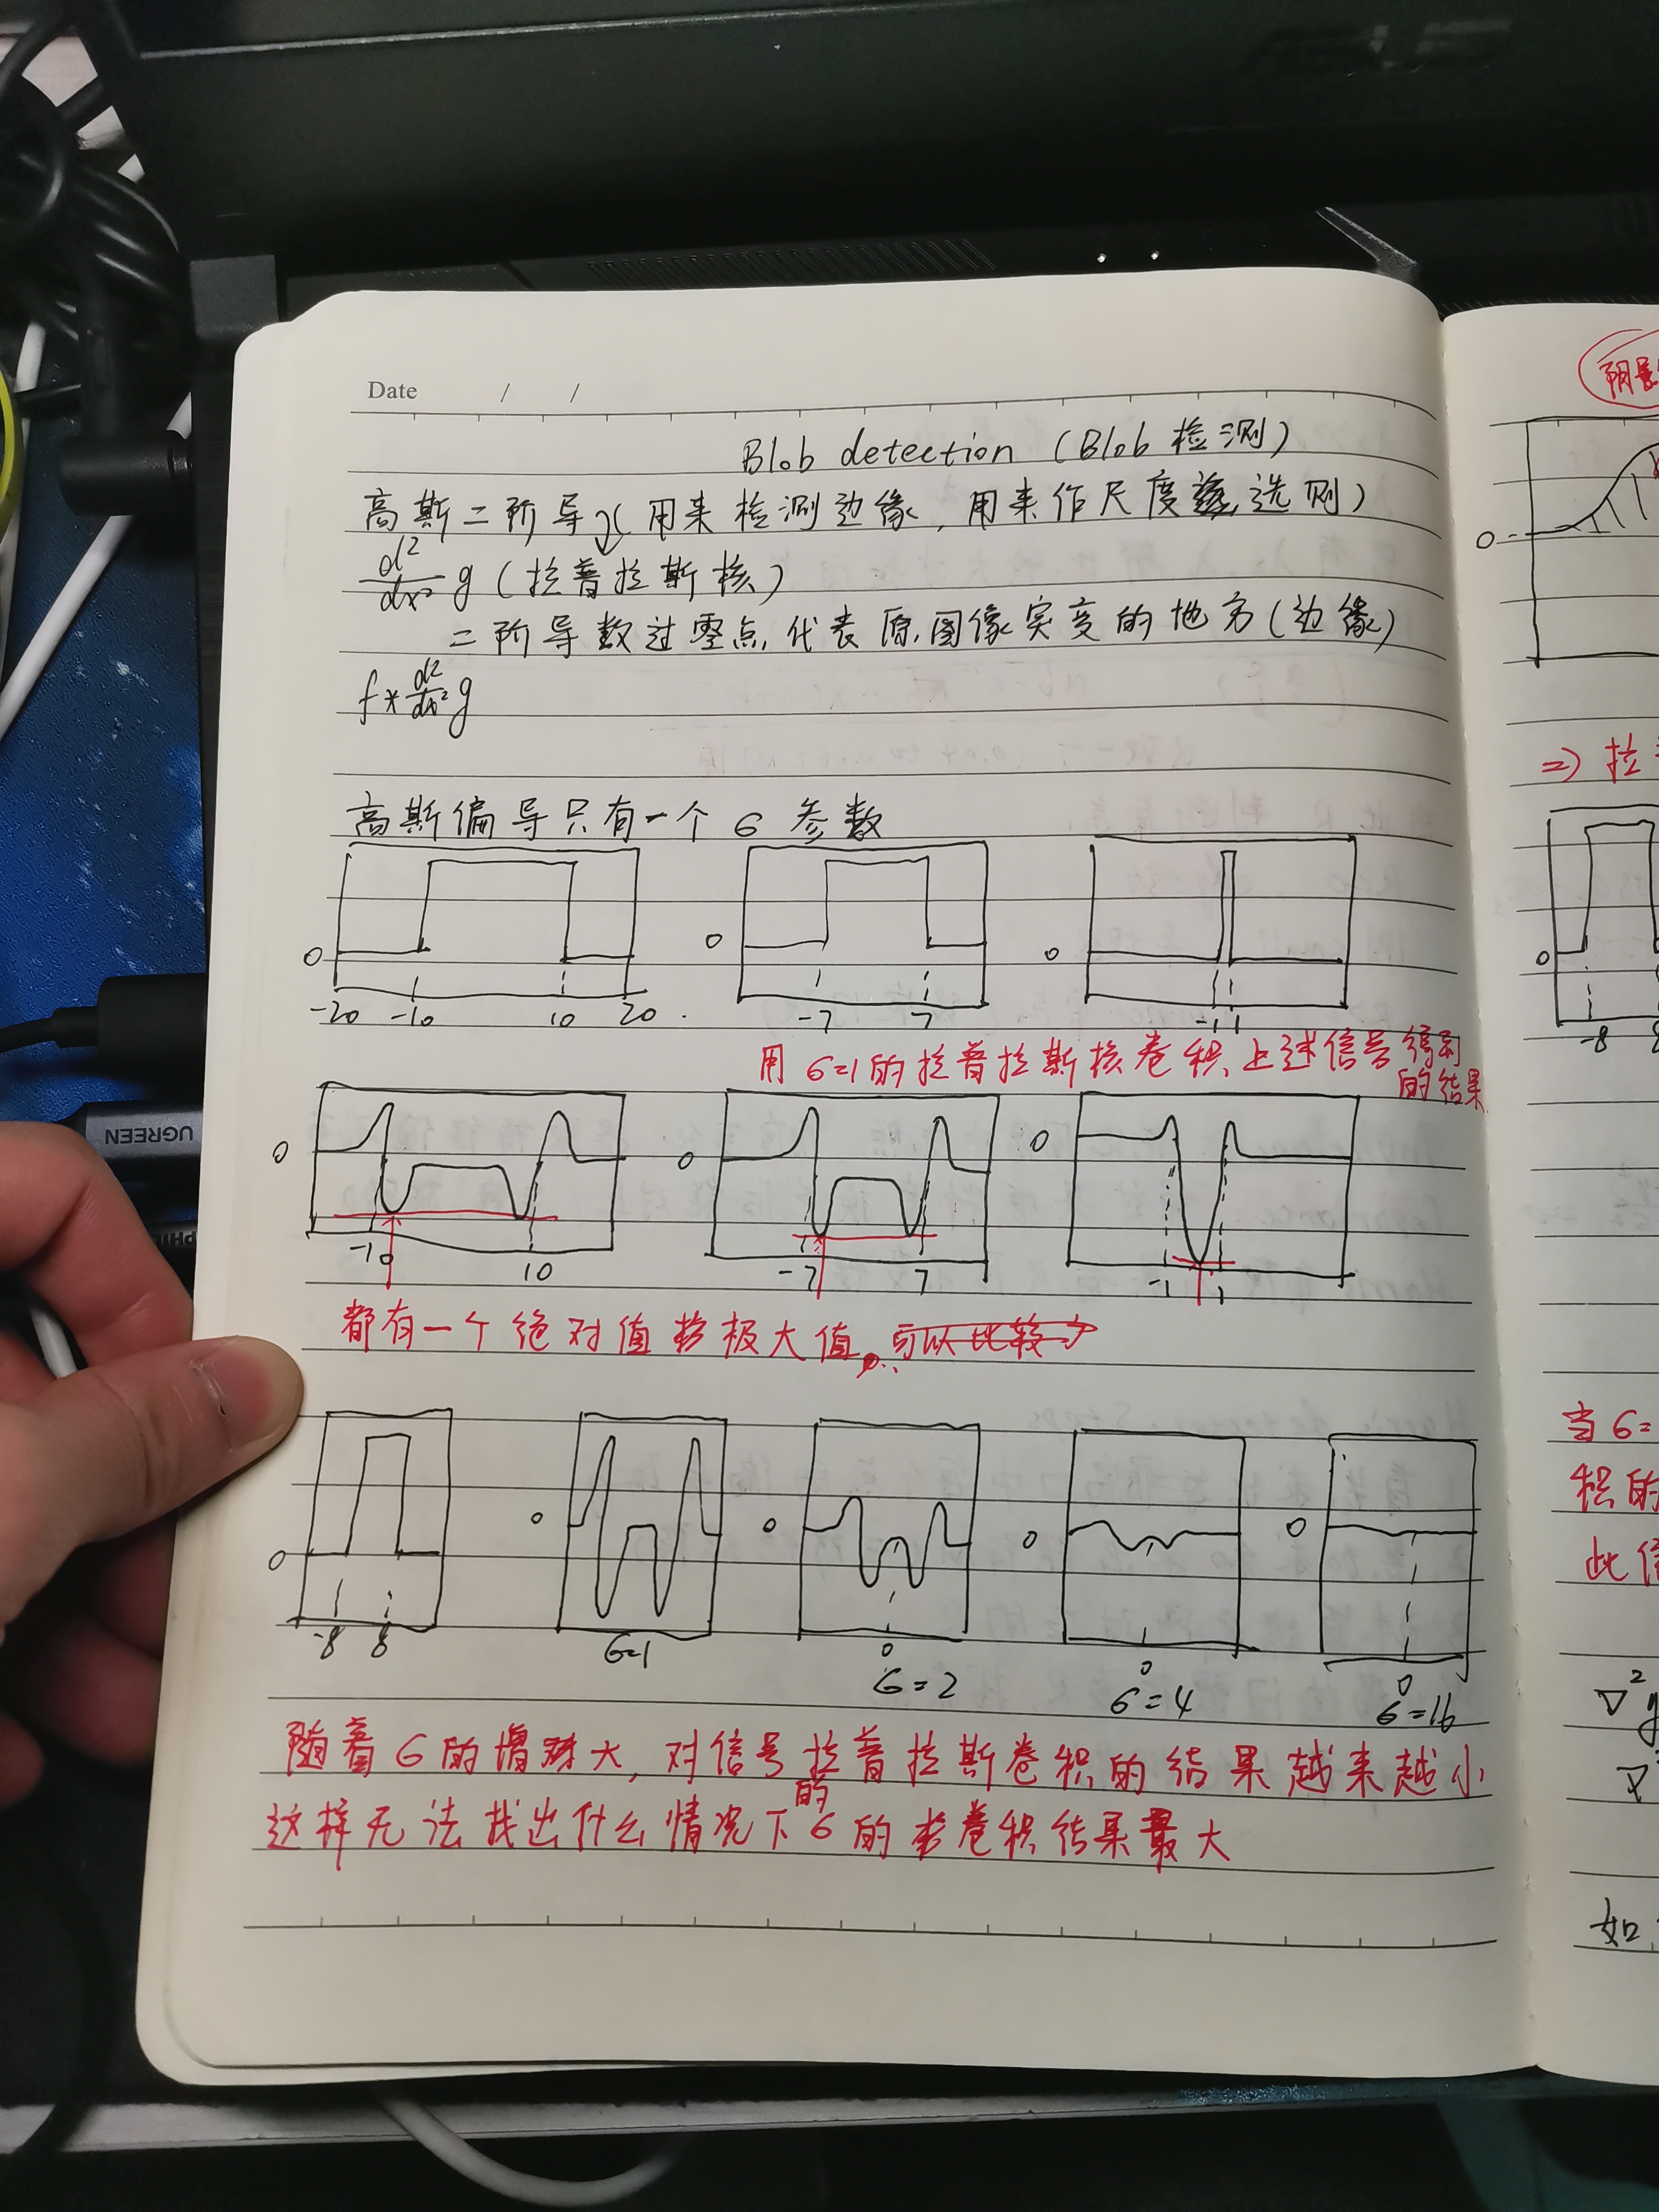 Date / /
Blob detection (Blob 检测)
高斯二阶导(用来检测边缘, 用来作尺度 选则)
d²/dx² g (拉普拉斯核)
二阶导数过零点代表原图像突变的地方(边缘)
f * d²/dx² g
高斯偏导只有一个 6 参数
0 -20 -10 10 20
0 -7 7
0 -1 1
用 6=1 的拉普拉斯核卷积上述信号得到
的结果
0 -10 10
0 -7 7
0 -1 1
都有一个绝对值极大值。可以比较
0 -8 8
0 6=1
0 0 6=2
0 0 6=4
0 0 6=16
随着 6 的增大, 对信号拉普拉斯卷积的结果越来越小
这样无法找出什么情况下的 6 的卷积结果最大
0
=) 拉
0 -8 8
当 6=
积的
此信
∇² g
∇²
如
UGREEN